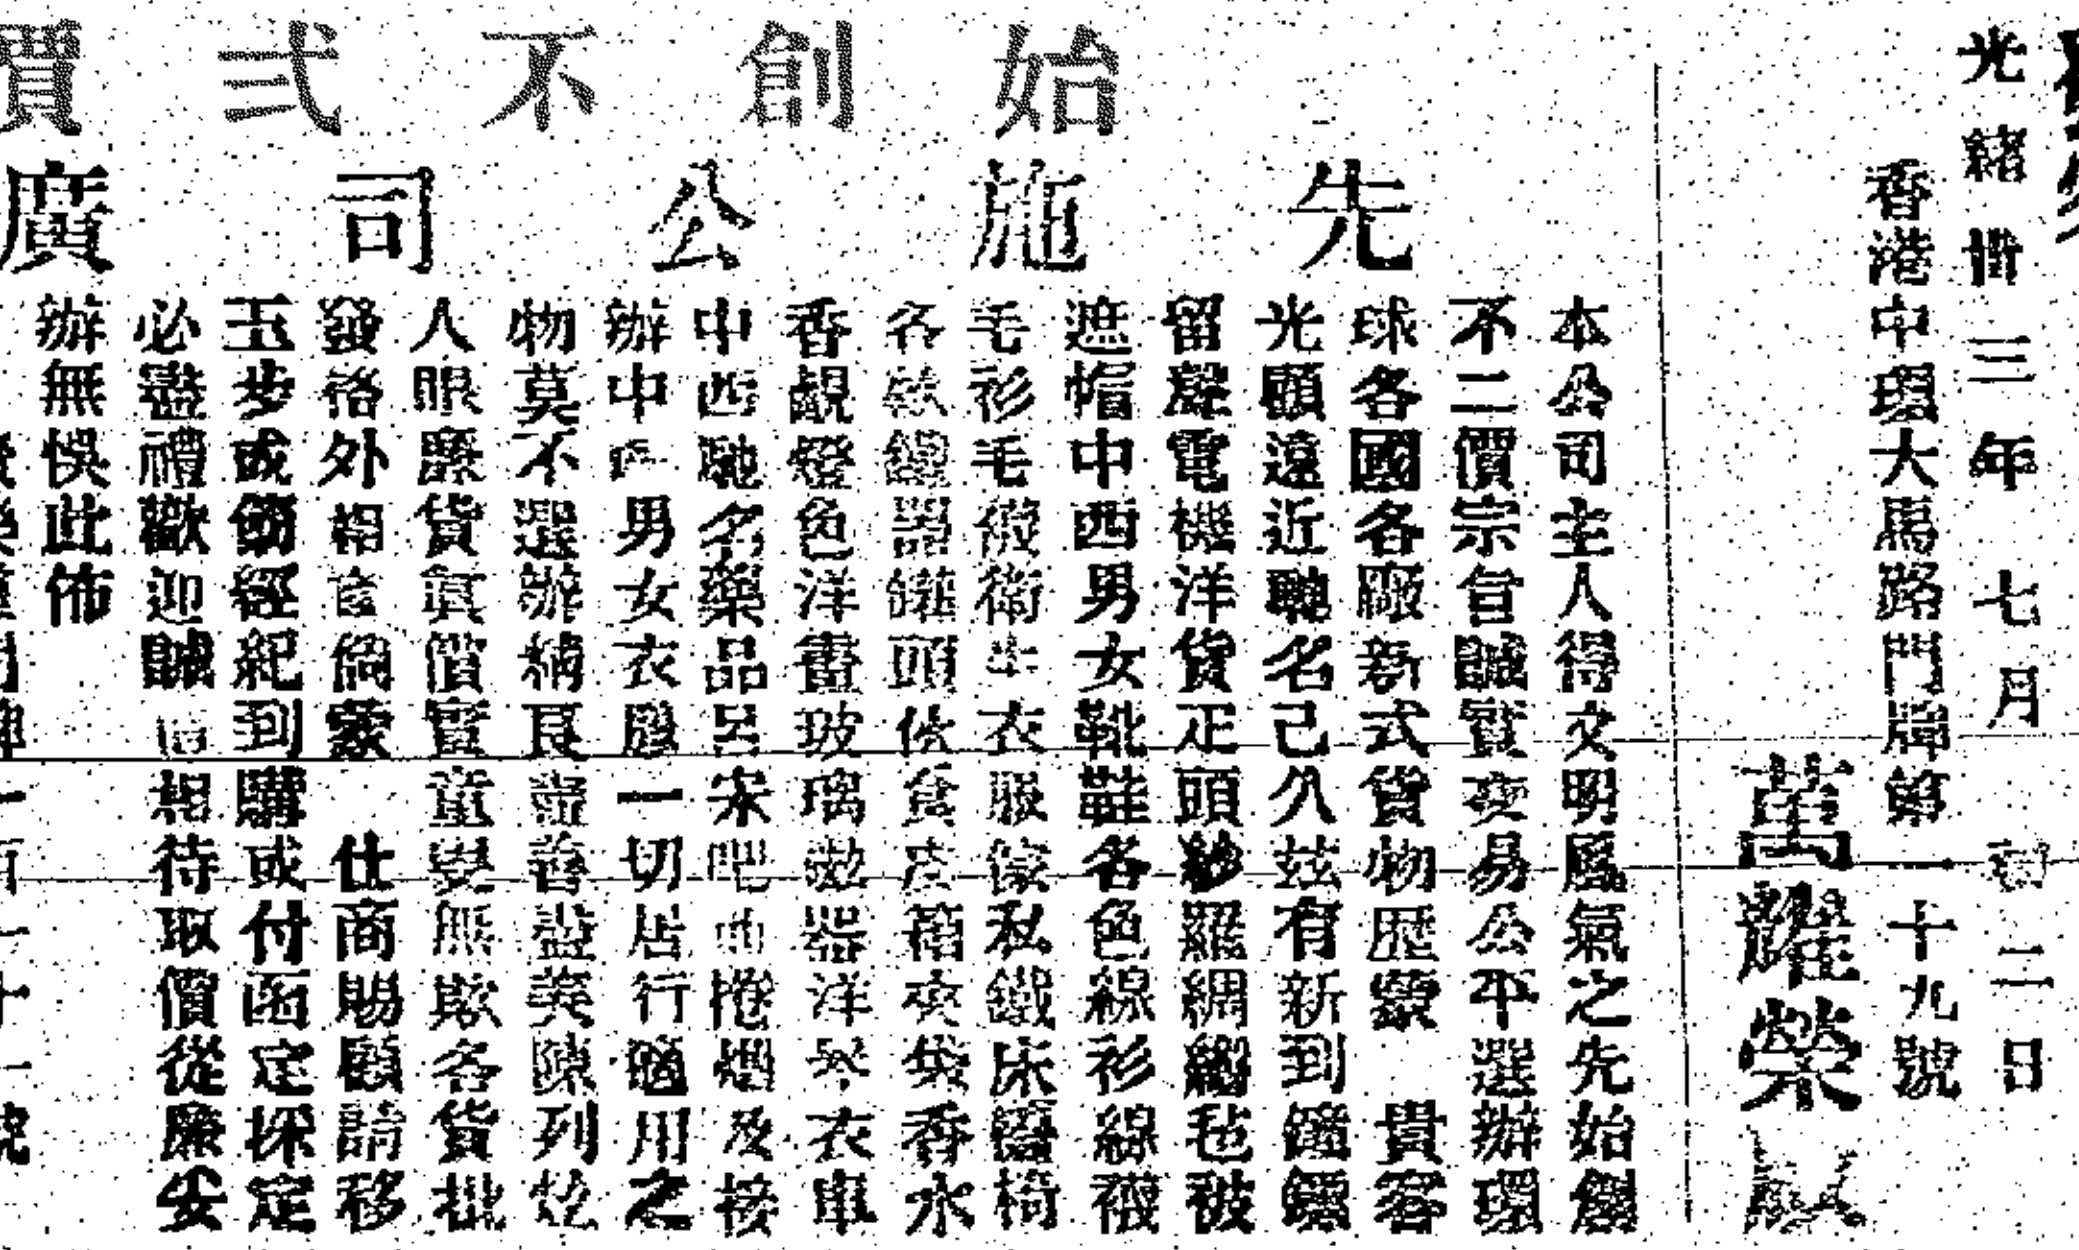 光緒卅三年七月初二日
香港中環大馬路門牌第一十九號
萬耀榮啟
始創不弍價
先施公司廣
本公司主人得文明風氣之先始創
不二價宗旨誠實交易公平選辦環
球各國各廠新式貨物歷蒙 貴客
光顧遠近馳名己久玆有新到鐘錶
留聲電機洋貨疋頭紗羅綢縐毡被
遮帽中西男女靴鞋各色線衫線襪
毛衫毛襪衛生衣服傢私鐵床檯椅
各款鐘器罐頭伙食皮箱夾袋香水
香視燈色洋畫玻璃磁器洋琴衣車
中西馳名藥品呂宋吧曲捲烟及接
辦中西男女衣服一切居行適用之
物莫不選辦精良盡善盡美陳列炫
人眼簾貨眞價實童叟無欺各貨批
發格外相宜倘蒙 仕商賜顧請移
玉步或飭經紀到購或付函定採定
必盡禮歡迎誠信相待取價從廉妥
辦無悞此佈